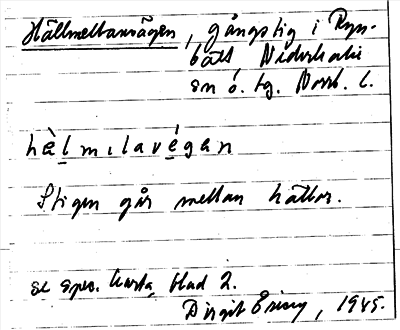 Hällmellanvägen, gångstig i Ryss-
bält, Nederkalix
sn ö. tg. Norrb. l.
hæ̀l mılavégan
Stigen går mellan hällar.
se spec. karta, blad 2.
Birgit Falck, 1945.